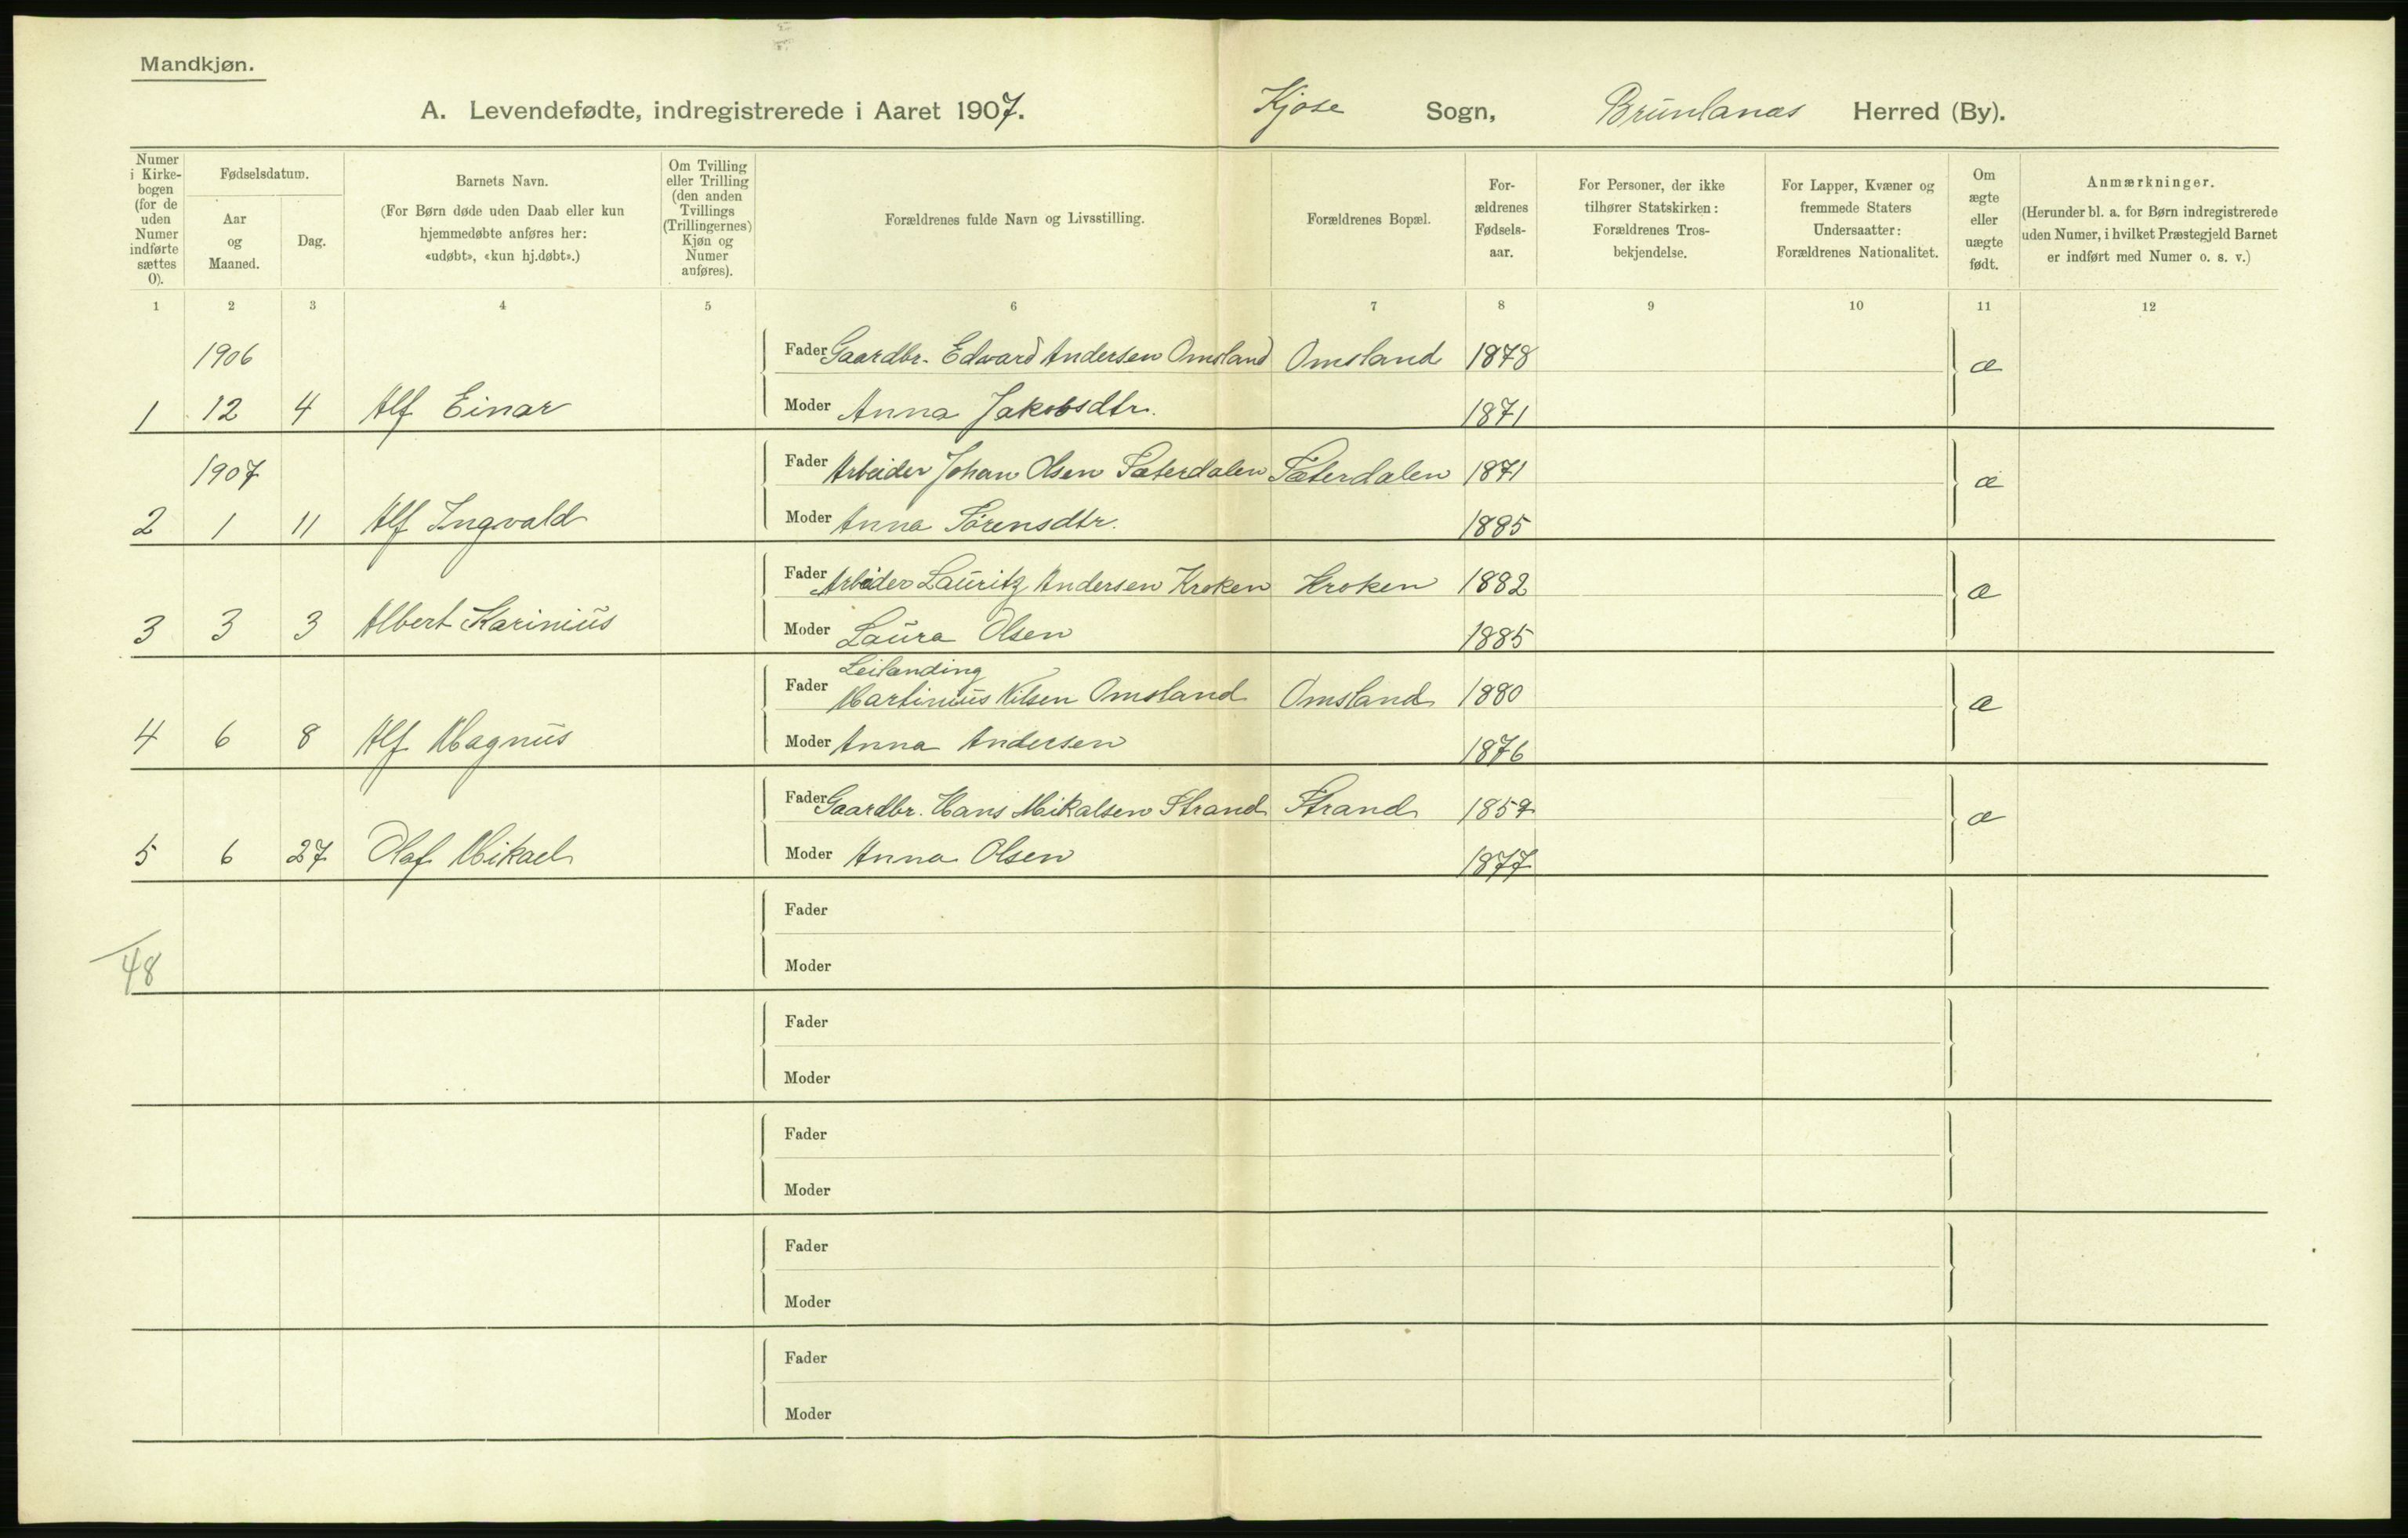 Mandkjøn.
A. Levendefødte, indregistrerede i Aaret 1907. Kjose Sogn, Brunlanæs Herred (By).
Numer i Kirkebogen (for de uden Numer indførte sættes 0).
Fødselsdatum.
Aar og Maaned.
Dag.
Barnets Navn.
(For Børn døde uden Daab eller kun
hjemmedøbte anføres her:
«udøbt», «kun hj.døbt».)
Om Tvilling
eller Trilling
(den anden
Tvillings
(Trillingernes)
Kjøn og
Numer
anføres).
Forældrenes fulde Navn og Livsstilling.
Forældrenes Bopæl.
For-
ældrenes
Fødsels-
aar.
For Personer, der ikke
tilhører Statskirken:
Forældrenes Tros-
bekjendelse.
For Lapper, Kvæner og
fremmede Staters
Undersaatter:
Forældrenes Nationalitet.
Om
ægte
eller
uægte
født.
Anmærkninger.
(Herunder bl. a. for Børn indregistrerede
uden Numer, i hvilket Præstegjeld Barnet
er indført med Numer o. s. v.)
1 2 3 4 5 6 7 8 9 10 11 12
1906 Fader Gaardbr. Edvard Andersen Omsland Omsland 1878 æ
1 12 4 Alf Einar Moder Anna Jakobsdtr. 1871
1907 Fader Arbeider Johan Olsen Sæterdalen Sæterdalen 1871 æ
2 1 11 Alf Ingvald Moder Anna Sørensdtr. 1885
Fader Arbeider Lauritz Andersen Kroken Kroken 1882 æ
3 3 3 Albert Karinius Moder Laura Olsen 1885
Leilænding
Fader Martinius Nilsen Omsland Omsland 1880 æ
4 6 8 Alf Magnus Moder Anna Andersen 1876
Fader Gaardbr. Hans Mikalsen Strand Strand 1857 æ
5 6 27 Olaf Mikael Moder Anna Olsen 1877
Fader
48 Moder
Fader
Moder
Fader
Moder
Fader
Moder
Fader
Moder